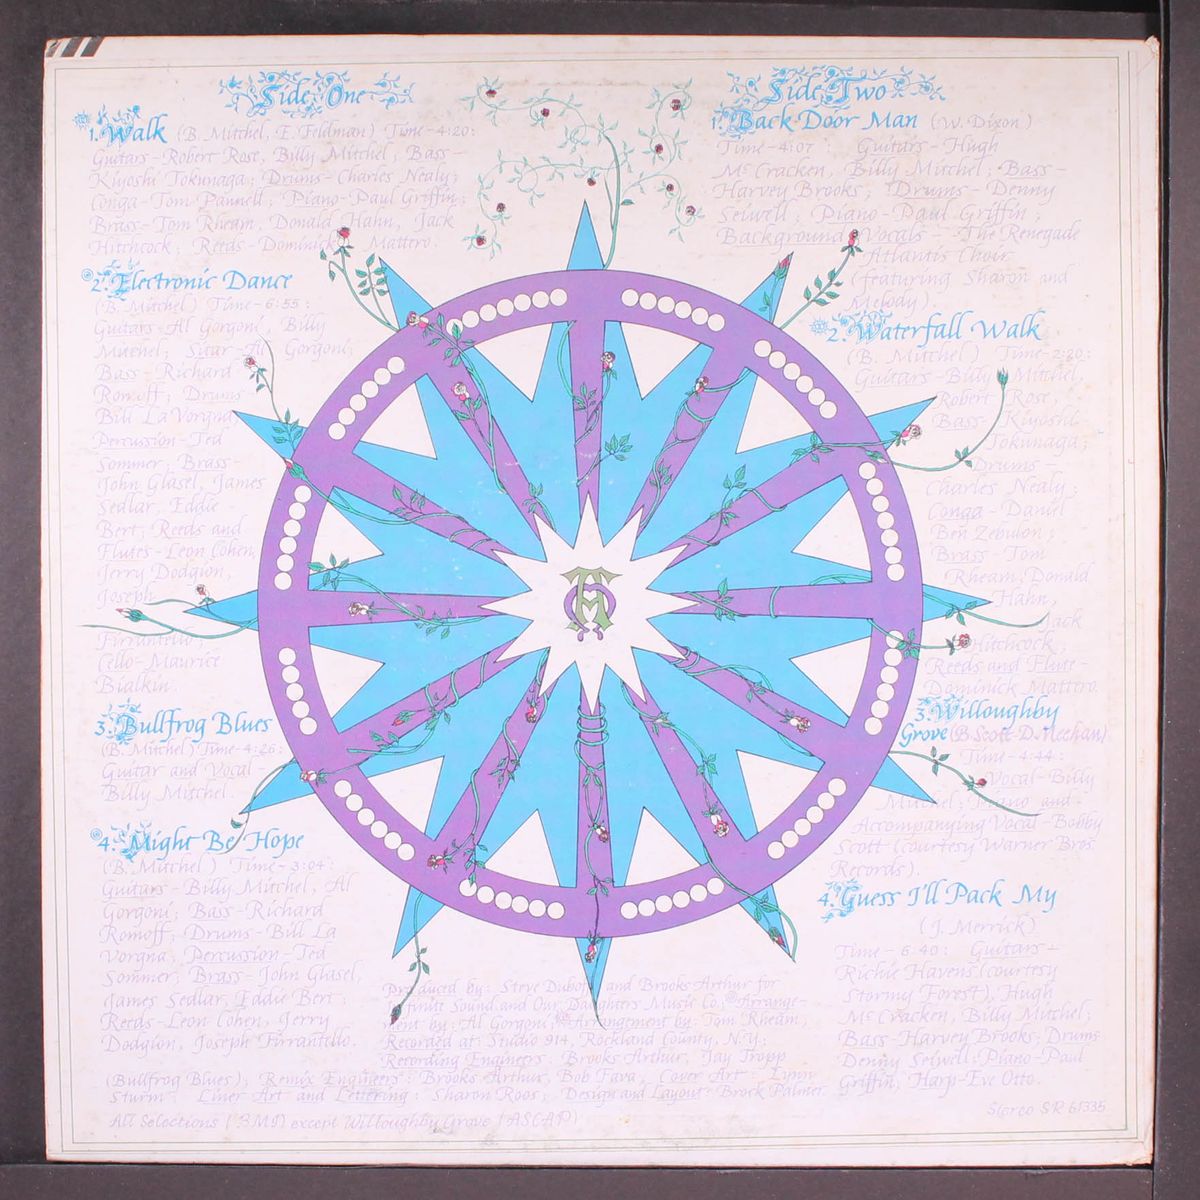 Side One
1. Walk (B. Mitchel, E. Feldman) Time-4:20:
Guitars-Robert Rose, Billy Mitchel; Bass-
Kiyoshi Tokunaga; Drums-Charles Nealy;
Conga-Tom Pannell; Piano-Paul Griffin;
Brass-Tom Rheam, Donald Hahn, Jack
Hitchcock; Reeds-Dominick Mattero.
2. Electronic Dance
(B. Mitchel) Time-6:55:
Guitars-Al Gorgoni, Billy
Mitchel; Sitar-Al Gorgoni;
Bass-Richard
Romoff; Drums-
Bill La Vorgna;
Percussion-Ted
Sommer; Brass-
John Glasel, James
Sedlar, Eddie
Bert; Reeds and
Flutes-Leon Cohen,
Jerry Dodgion,
Joseph
Firrantello;
Cello-Maurice
Bialkin.
3. Bullfrog Blues
(B. Mitchel) Time-4:26:
Guitar and Vocal-
Billy Mitchel.
4. Might Be Hope
(B. Mitchel) Time-3:04:
Guitars-Billy Mitchel, Al
Gorgoni; Bass-Richard
Romoff; Drums-Bill La
Vorgna; Percussion-Ted
Sommer; Brass-John Glasel,
James Sedlar, Eddie Bert;
Reeds-Leon Cohen, Jerry
Dodgion, Joseph Firrantello.
Side Two
1. Back Door Man (W. Dixon)
Time-4:07: Guitars-Hugh
McCracken, Billy Mitchel; Bass-
Harvey Brooks; Drums-Denny
Seiwell; Piano-Paul Griffin;
Background Vocals-The Renegade
Atlantis Choir
(featuring Sharon and
Melody).
2. Waterfall Walk
(B. Mitchel) Time-2:20:
Guitars-Billy Mitchel,
Robert Rose,
Bass-Kiyoshi
Tokunaga;
Drums-
Charles Nealy;
Conga-Daniel
Ben Zebulon;
Brass-Tom
Rheam, Donald
Hahn,
Jack
Hitchcock;
Reeds and Flute-
Dominick Mattero.
3. Willoughby
Grove (B. Scott-D. Meehan)
Time-4:44:
Vocal-Billy
Mitchel; Piano and
Accompanying Vocal-Bobby
Scott (courtesy Warner Bros.
Records).
4. Guess I'll Pack My
(J. Merrick)
Time-6:40: Guitars-
Richie Havens (courtesy
Stormy Forest), Hugh
McCracken, Billy Mitchel;
Bass-Harvey Brooks; Drums
Denny Seiwell; Piano-Paul
Griffin, Harp-Eve Otto.
Produced by: Steve Duboff and Brooks Arthur for
Infinite Sound and Our Daughters Music Co. Arrange-
ment by: Al Gorgoni; Arrangement by: Tom Rheam,
Recorded at: Studio 914, Rockland County, N.Y.;
Recording Engineers: Brooks Arthur, Jay Tropp
(Bullfrog Blues); Remix Engineers: Brooks Arthur, Bob Fava; Cover Art: Lynn
Sturm Liner Art and Lettering: Sharon Roos; Design and Layout: Brock Palmer.
All Selections (BMI) except Willoughby Grove (ASCAP)
Stereo SR 61335